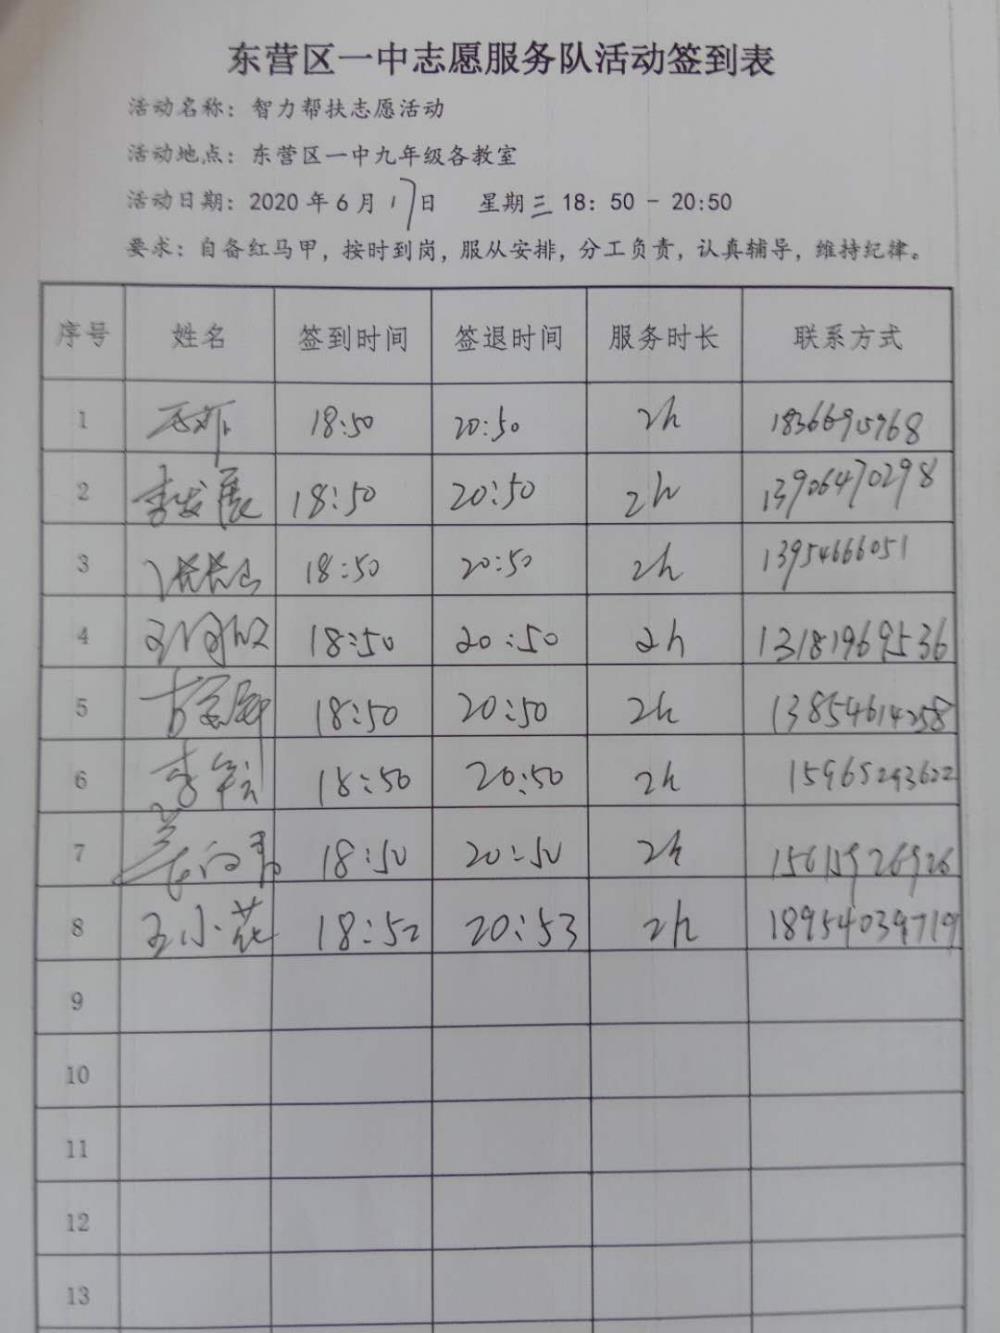 东营区一中志愿服务队活动签到表
活动名称：智力帮扶志愿活动
活动地点：东营区一中九年级各教室
活动日期：2020 年 6 月 17 日 星期三 18：50 － 20:50
要求：自备红马甲，按时到岗，服从安排，分工负责，认真辅导，维持纪律。
序号 姓名 签到时间 签退时间 服务时长 联系方式
1 18:50 20:50 2h
2 李发展 18:50 20:50 2h 13906470298
3 18:50 20:50 2h 13954666051
4 18:50 20:50 2h 13181969536
5 18:50 20:50 2h 13854614258
6 18:50 20:50 2h 15965293622
7 18:50 20:50 2h 15615926926
8 王小花 18:52 20:53 2h 18954039719
9
10
11
12
13